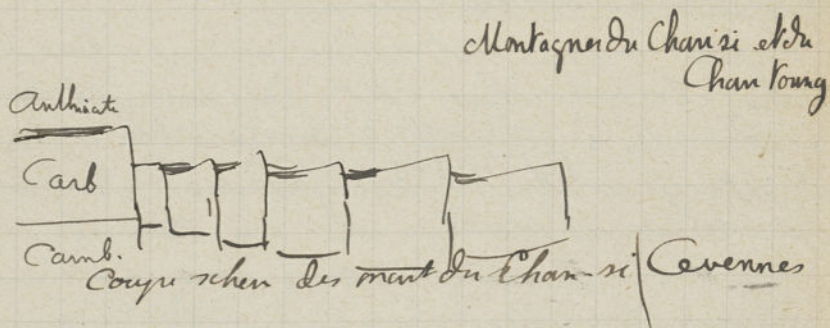 Montagnes du Chansi et du
Chan Toung
Anthracite
Carb
Camb.
Coupe schem des mont du Chan-si
Cevennes